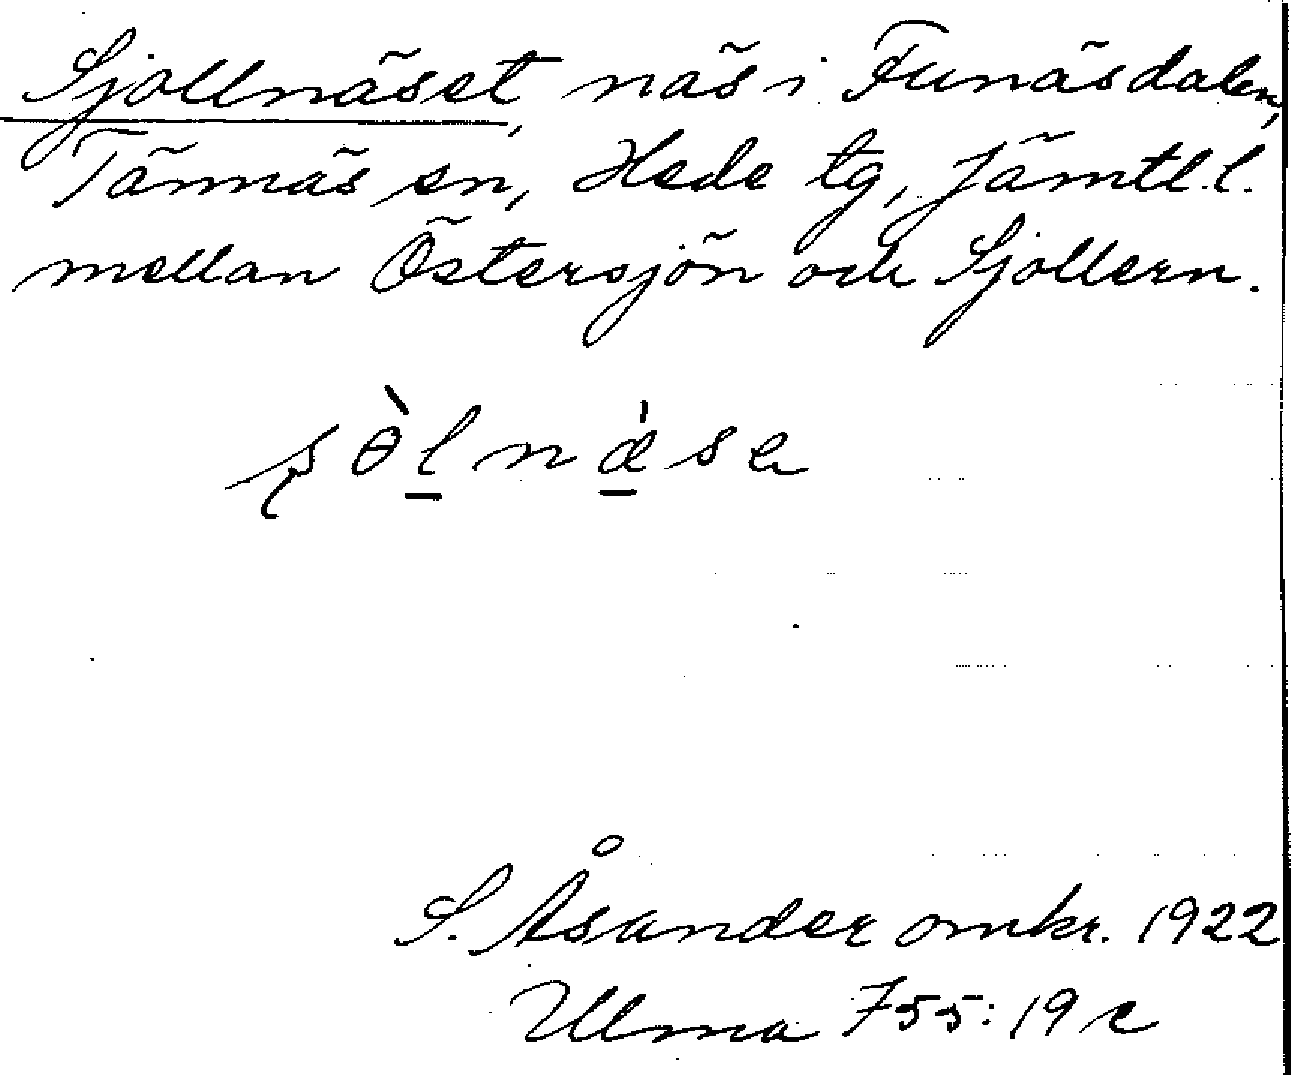 Sjollnäset, näs i Funäsdalen,
Tännäs sn, Hede tg, Jämtl.l.
mellan Östersjön och Sjollern.
S. Åsander omkr. 1922
Ulma 755:19 c